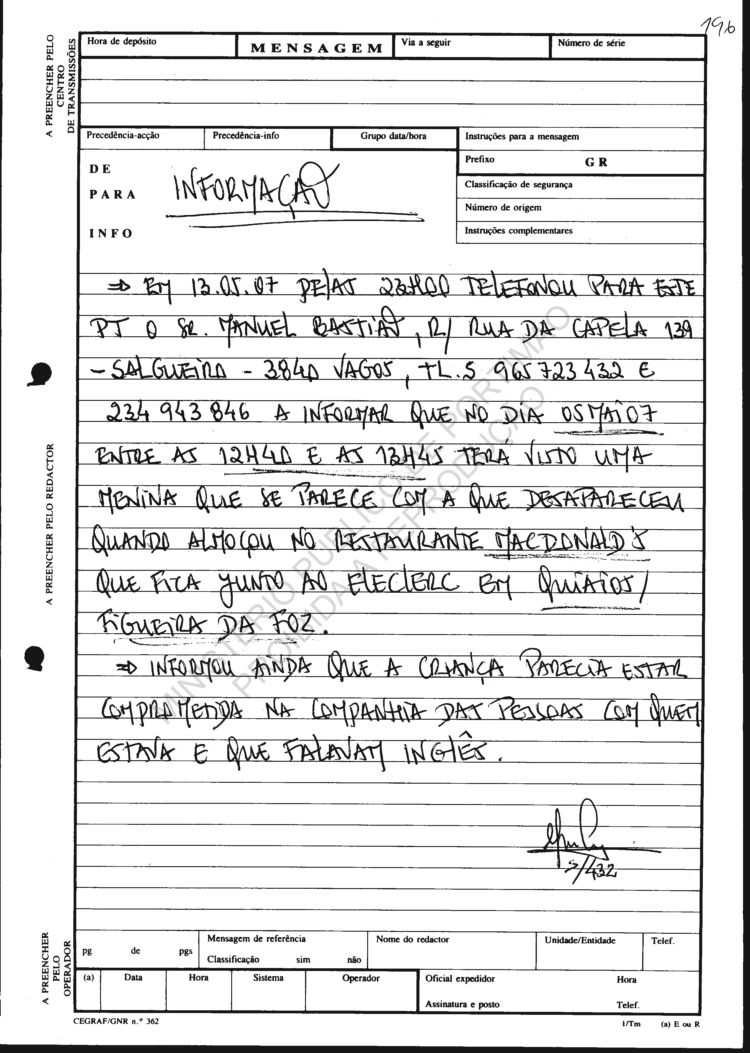 196
A PREENCHER PELO CENTRO DE TRANSMISSÕES
Hora de depósito
MENSAGEM
Via a seguir
Número de série
Precedência-acção
Precedência-info
Grupo data/hora
Instruções para a mensagem
DE
PARA
INFO
INFORMAÇÃO
Prefixo
GR
Classificação de segurança
Número de origem
Instruções complementares
A PREENCHER PELO REDACTOR
⇒ EM 13.05.07 PELAS 23H00 TELEFONOU PARA ESTE
PT O SR. MANUEL BASTIÃO, R/ RUA DA CAPELA 139
- SALGUEIRO - 3840 VAGOS, TL.S 965723432 E
234 943 846 A INFORMAR QUE NO DIA 05MAI07
ENTRE AS 12H40 E AS 13H45 TERÁ VISTO UMA
MENINA QUE SE PARECE COM A QUE DESAPARECEU
QUANDO ALMOÇOU NO RESTAURANTE MACDONALD'S
QUE FICA JUNTO AO ELECLERC EM QUIAIOS/
FIGUEIRA DA FOZ.
⇒ INFORMOU AINDA QUE A CRIANÇA PARECIA ESTAR
COMPROMETIDA NA COMPANHIA DAS PESSOAS COM QUEM
ESTAVA E QUE FALAVAM INGLÊS.
MINISTÉRIO PÚBLICO DE PORTIMÃO
PROIBIDA A REPRODUÇÃO
S/432
A PREENCHER PELO OPERADOR
pg de pgs
Mensagem de referência
Classificação sim não
Nome do redactor
Unidade/Entidade
Telef.
(a)
Data
Hora
Sistema
Operador
Oficial expedidor
Hora
Assinatura e posto
Telef.
CEGRAF/GNR n.º 362
1/Tm
(a) E ou R